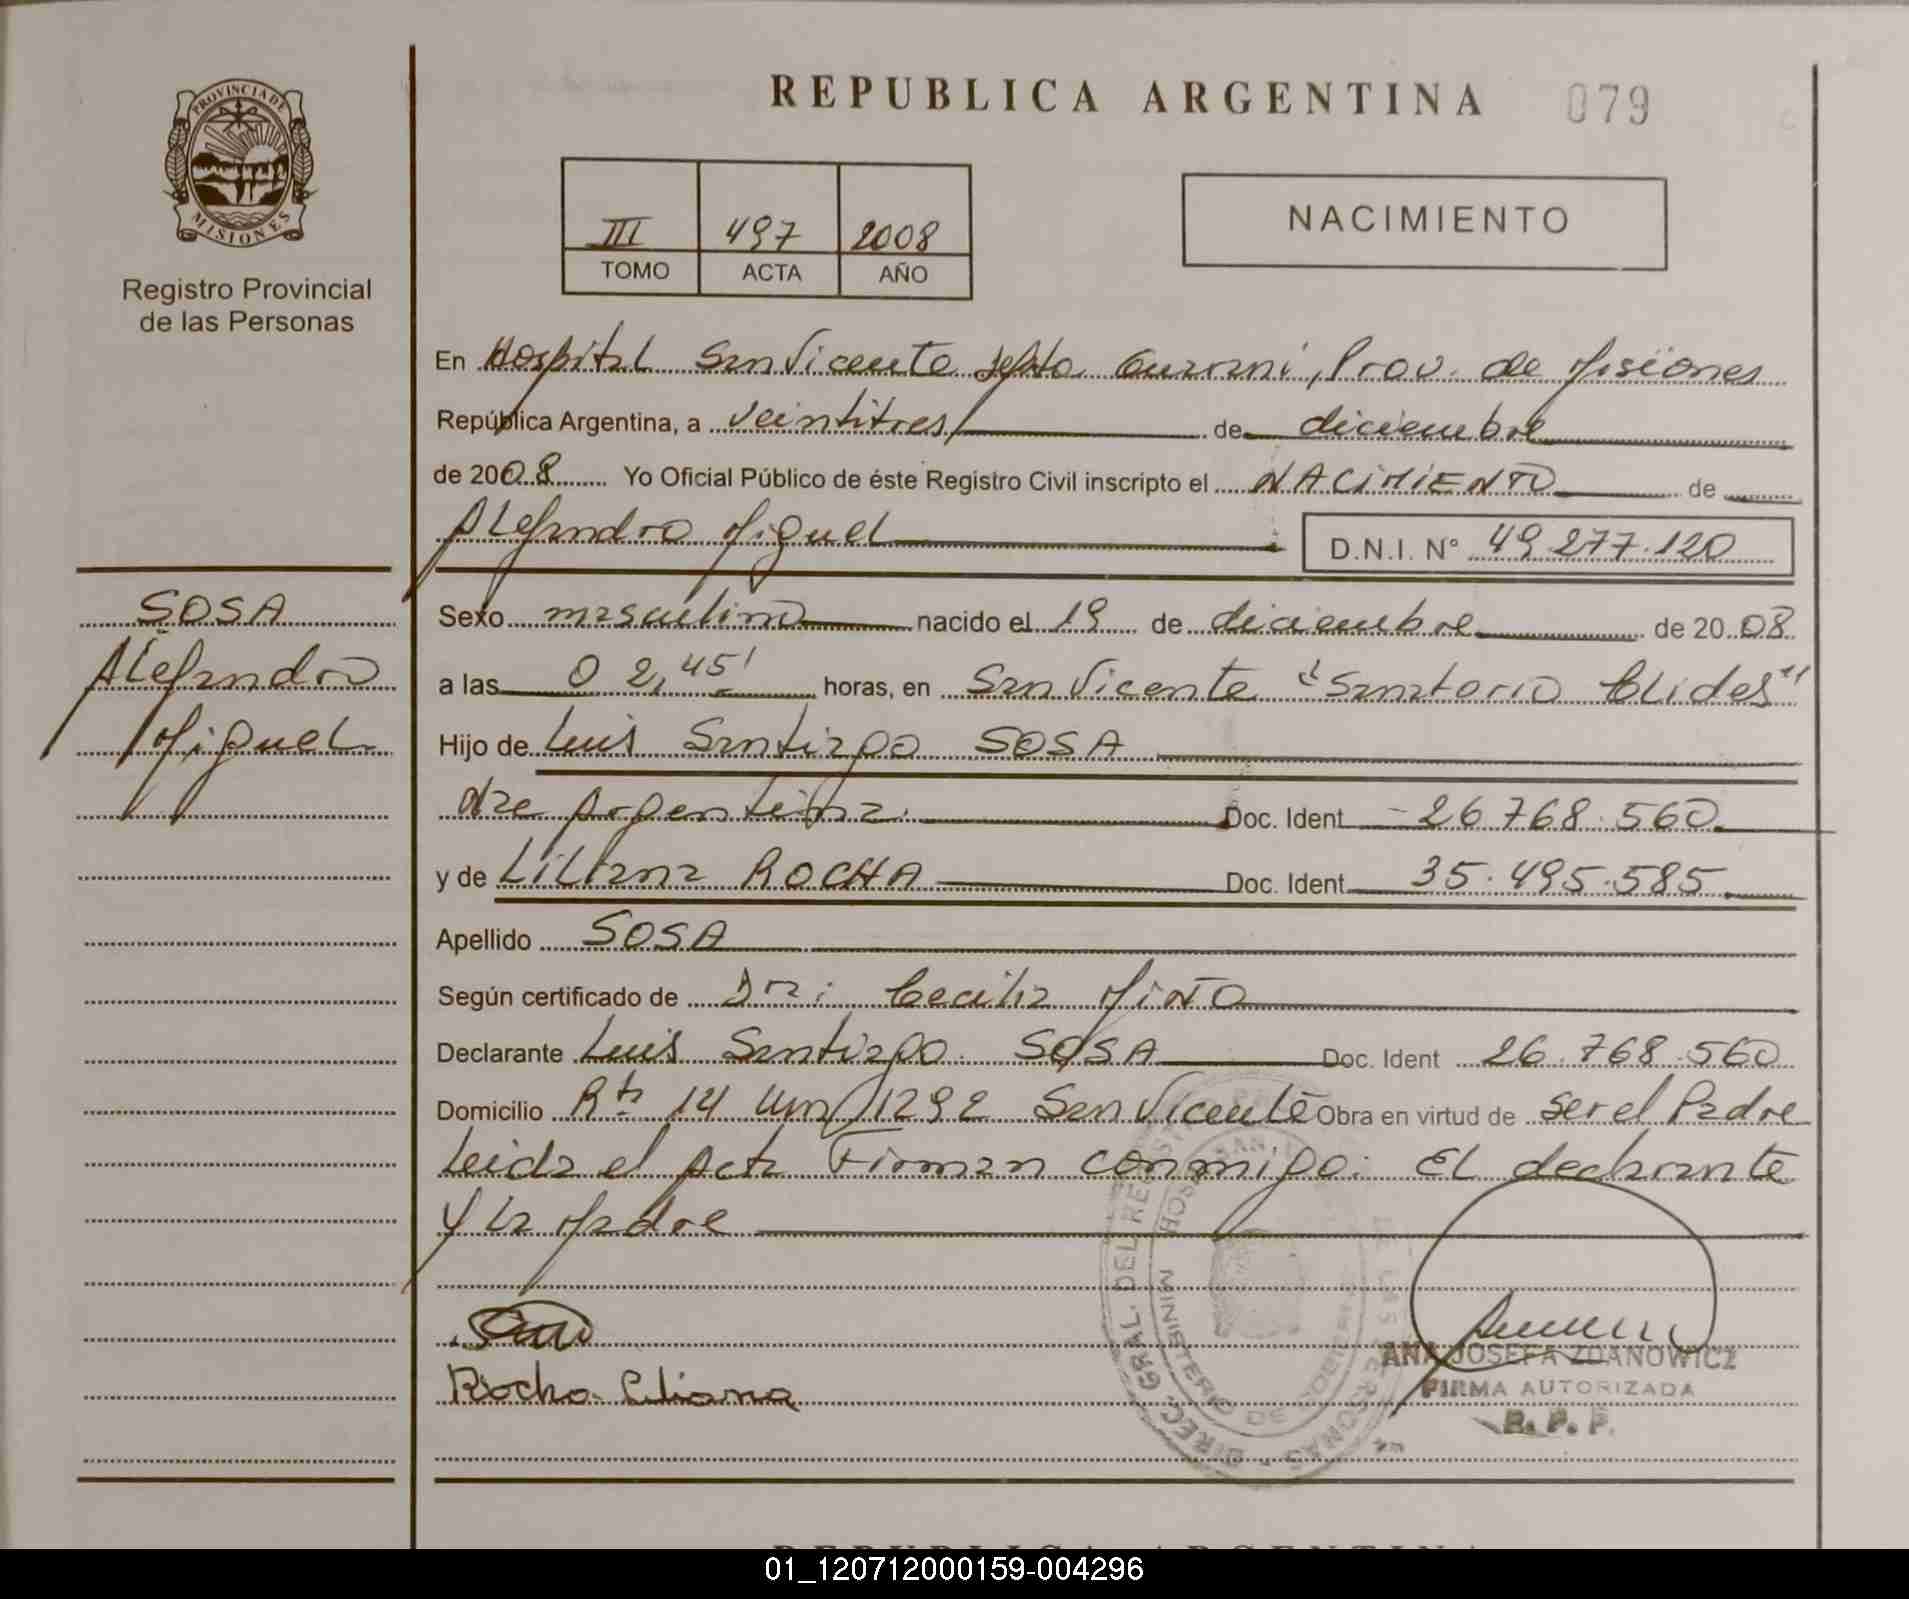 REPUBLICA ARGENTINA 079
PROVINCIA DE
MISIONES
Registro Provincial
de las Personas
III 497 2008
TOMO ACTA AÑO
NACIMIENTO
En Hospital San Vicente Dpto. Guarani, Prov. de Misiones
República Argentina, a veintitres de diciembre
de 2008 Yo Oficial Público de éste Registro Civil inscripto el NACIMIENTO de
Alejandro Miguel D.N.I. N° 49.277.120
SOSA
Alejandro
Miguel
Sexo masculino nacido el 19 de diciembre de 2008
a las 02,45' horas, en San Vicente "Sanatorio Clides"
Hijo de Luis Santiago SOSA
Nac Argentina. Doc. Ident 26.768.560
y de Liliana ROCHA Doc. Ident 35.495.585
Apellido SOSA
Según certificado de Dra: Cecilia MiÑO
Declarante Luis Santiago SOSA Doc. Ident 26.768.560
Domicilio Rta 14 Km 1292 San Vicente Obra en virtud de ser el Padre
Leida el Acta Firman conmigo: El declarante
y la Madre
Rocha Liliana
DIREC. GRAL. DEL REGISTRO DE LAS PERSONAS
MINISTERIO DE GOBIERNO
ANA JOSEFA ZDANOWICZ
FIRMA AUTORIZADA
R. P. P.
REPUBLICA ARGENTINA
01_120712000159-004296